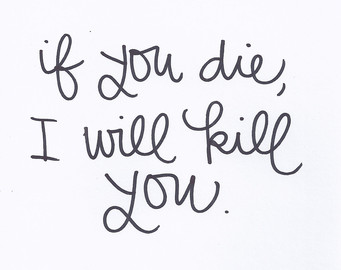 if you die,
I will kill
you.